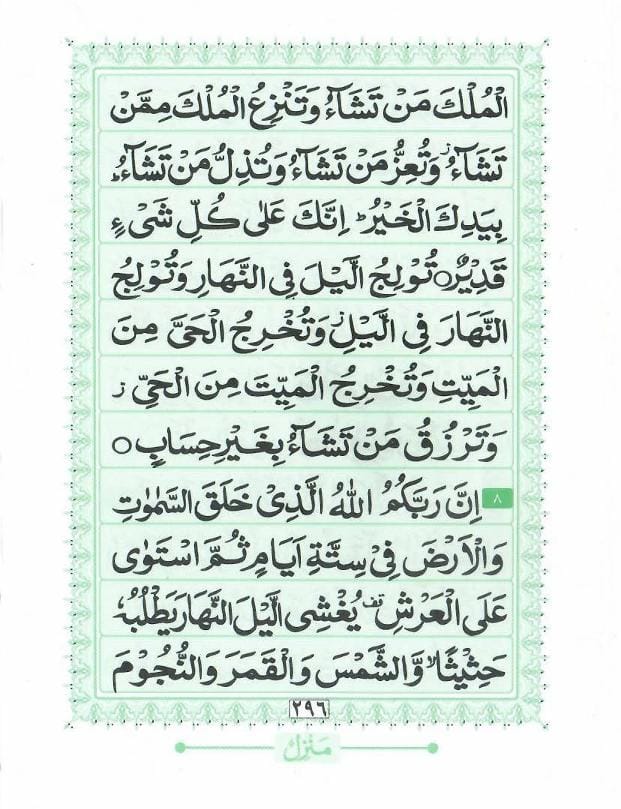 الْمُلْكَ مَنْ تَشَآءُ وَتَنْزِعُ الْمُلْكَ مِمَّنْ
تَشَآءُ ز وَتُعِزُّ مَنْ تَشَآءُ وَتُذِلُّ مَنْ تَشَآءُ ط
بِيَدِكَ الْخَيْرُ ط اِنَّكَ عَلٰى كُلِّ شَیْءٍ
قَدِيْرٌ ○ تُوْلِجُ الَّيْلَ فِى النَّهَارِ وَتُوْلِجُ
النَّهَارَ فِى الَّيْلِ ز وَتُخْرِجُ الْحَىَّ مِنَ
الْمَيِّتِ وَتُخْرِجُ الْمَيِّتَ مِنَ الْحَىِّ ز
وَتَرْزُقُ مَنْ تَشَآءُ بِغَيْرِ حِسَابٍ ○
٨ اِنَّ رَبَّكُمُ اللّٰهُ الَّذِىْ خَلَقَ السَّمٰوٰتِ
وَالْاَرْضَ فِىْ سِتَّةِ اَيَّامٍ ثُمَّ اسْتَوٰى
عَلَى الْعَرْشِ قف يُغْشِى الَّيْلَ النَّهَارَ يَطْلُبُهٗ
حَثِيْثًا لا وَّالشَّمْسَ وَالْقَمَرَ وَالنُّجُوْمَ
٢٩٦
مَنْزِل